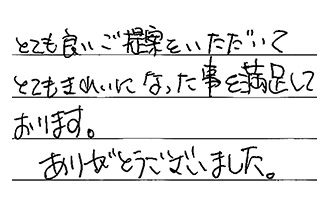 とても良いご提案をいただいて
とてもきれいになった事を満足して
おります。
ありがとうございました。